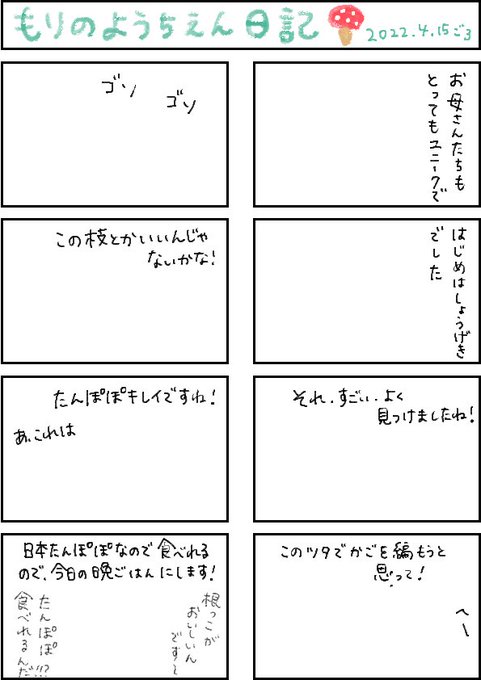 もりのようちえん日記
2022.4.15ごろ
お母さんたちも
とってもユニークで
はじめはしょうげき
でした
それ.すごい.よく
見つけましたね!
このツタでかごを編もうと
思って!
へー
ゴソ
ゴソ
この枝とかいいんじゃ
ないかな!
たんぽぽキレイですね!
あ、これは
日本たんぽぽなので食べれる
ので、今日の晩ごはんにします!
根っこが
おいしいん
です〜
たんぽぽ
食べれるんだ!!?